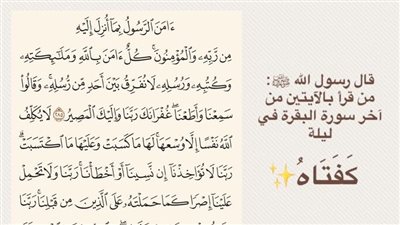 ءَامَنَ ٱلرَّسُولُ بِمَآ أُنزِلَ إِلَيْهِ
مِن رَّبِّهِۦ وَٱلْمُؤْمِنُونَ ۚ كُلٌّ ءَامَنَ بِٱللَّهِ وَمَلَـٰٓئِكَتِهِۦ
وَكُتُبِهِۦ وَرُسُلِهِۦ لَا نُفَرِّقُ بَيْنَ أَحَدٍ مِّن رُّسُلِهِۦ ۚ وَقَالُوا۟
سَمِعْنَا وَأَطَعْنَا ۖ غُفْرَانَكَ رَبَّنَا وَإِلَيْكَ ٱلْمَصِيرُ ٢٨٥ لَا يُكَلِّفُ
ٱللَّهُ نَفْسًا إِلَّا وُسْعَهَا ۚ لَهَا مَا كَسَبَتْ وَعَلَيْهَا مَا ٱكْتَسَبَتْ ۗ
رَبَّنَا لَا تُؤَاخِذْنَآ إِن نَّسِينَآ أَوْ أَخْطَأْنَا ۚ رَبَّنَا وَلَا تَحْمِلْ
عَلَيْنَآ إِصْرًا كَمَا حَمَلْتَهُۥ عَلَى ٱلَّذِينَ مِن قَبْلِنَا ۚ رَبَّنَا
قال رسول الله ﷺ :
من قرأ بالآيتين من
آخر سورة البقرة في
ليلة
كَفَتَاهُ